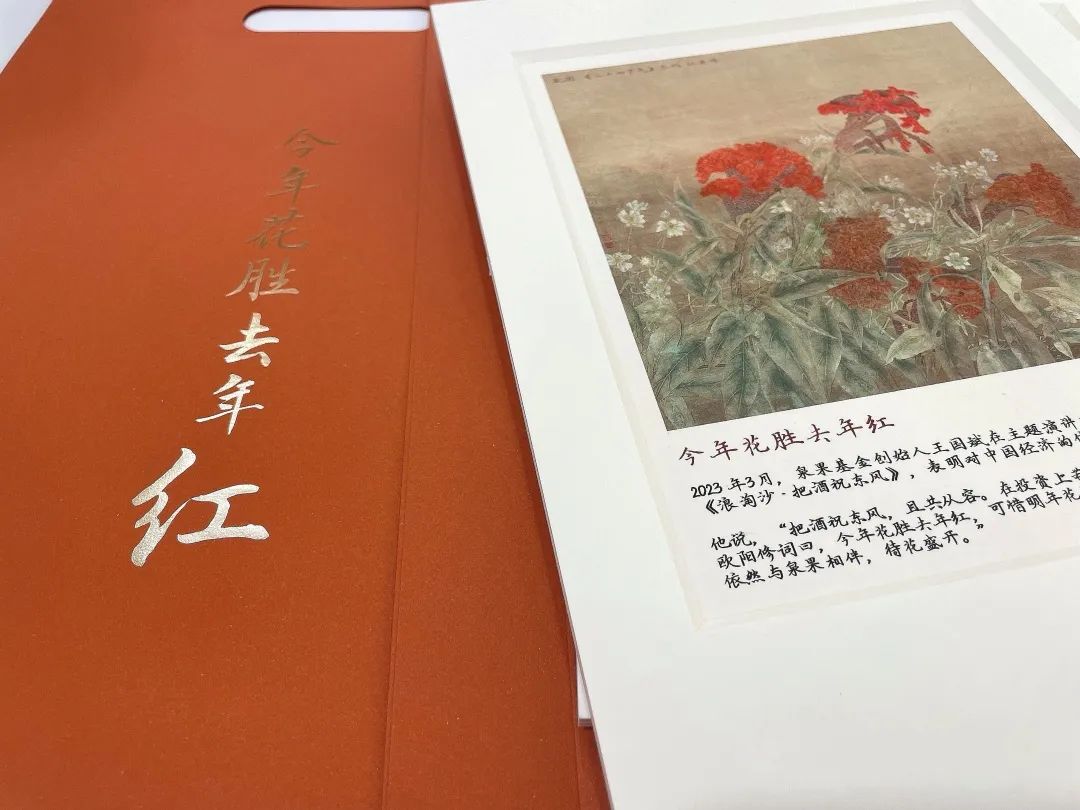 今年花胜去年
红
今年花胜去年红
2023年3月，泉果基金创始人王国斌在主题演讲
《浪淘沙·把酒祝东风》，表明对中国经济的
他说，“把酒祝东风，且共从容。在投资上
欧阳修词曰，今年花胜去年红，可惜明年花
依然与泉果相伴，待花盛开。”